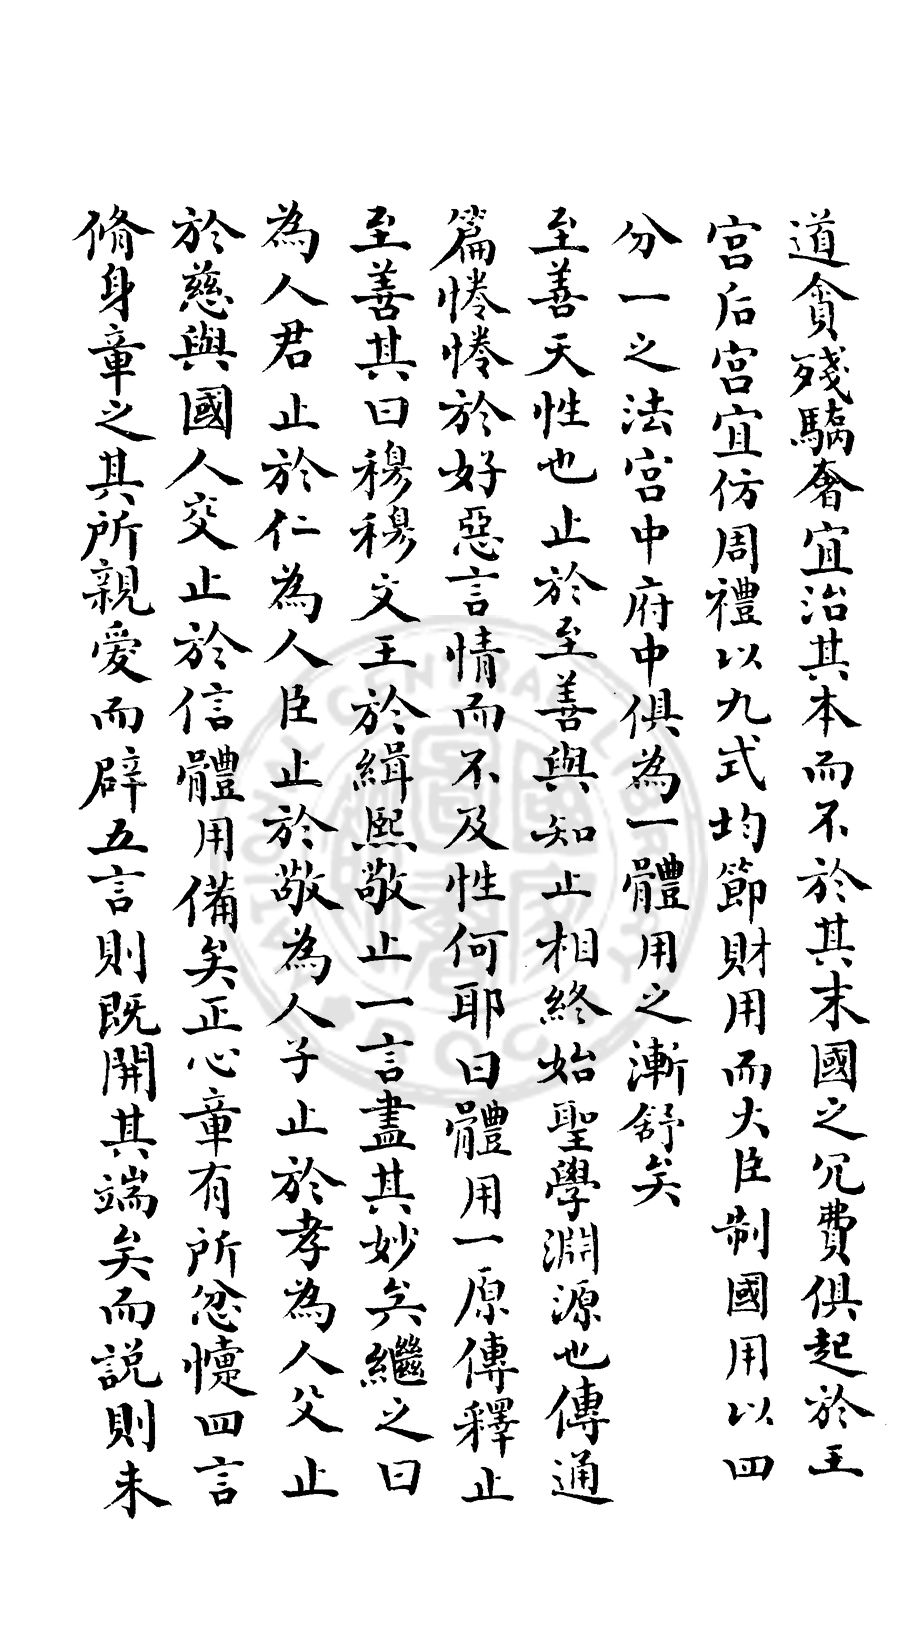 道貪殘驕奢宜治其本而不於其末國之冗費俱起於王
宮后宮宜仿周禮以九式均節財用而大臣制國用以四
分一之法宮中府中俱為一體用之漸舒矣
至善天性也止於至善與知止相終始聖學淵源也傳通
篇惓惓於好惡言情而不及性何耶曰體用一原傳釋止
至善其曰穆穆文王於緝熙敬止一言盡其妙矣繼之曰
為人君止於仁為人臣止於敬為人子止於孝為人父止
於慈與國人交止於信體用備矣正心章有所忿懥四言
脩身章之其所親愛而辟五言則既開其端矣而説則未
NATIONAL CENTRAL LIBRARY